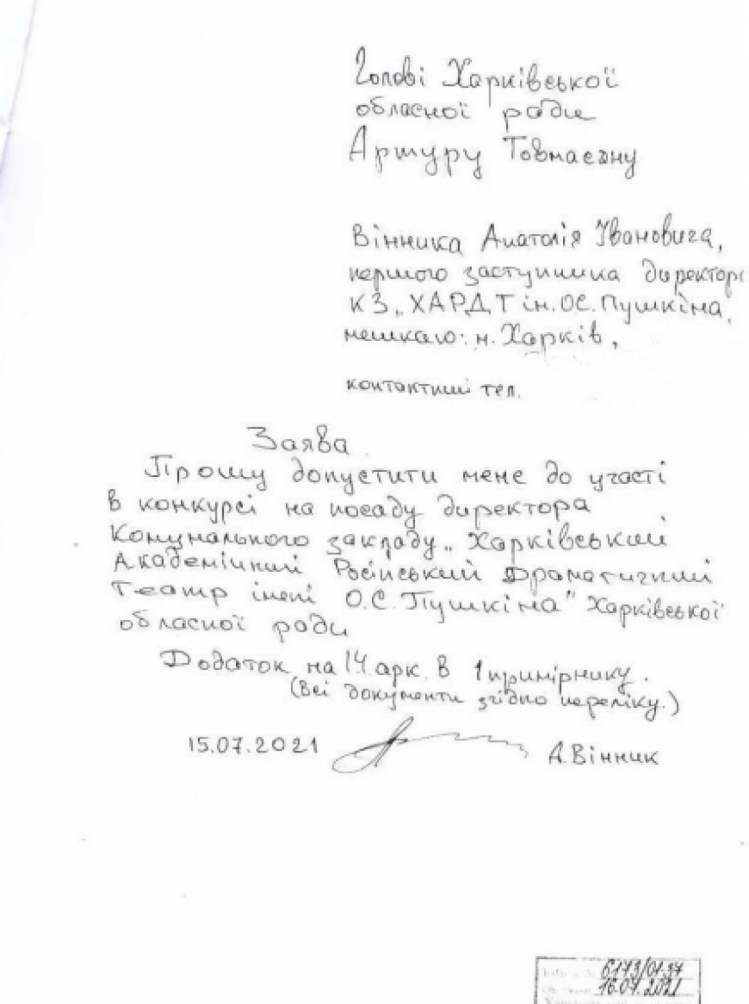 Голові Харківської
обласної ради
Артуру Товмасяну
Вінника Анатолія Івановича,
першого заступника директора
КЗ „ХАРДТ ім. О.С. Пушкіна,
мешкаю: м. Харків,
контактний тел.
Заява
Прошу допустити мене до участі
в конкурсі на посаду директора
Комунального закладу „Харківський
Академічний Російський Драматичний
Театр імені О.С. Пушкіна" Харківської
обласної ради
Додаток на 14 арк. в 1 примірнику.
(Всі документи згідно переліку.)
15.07.2021 А.Вінник
6173/01-37
16.07.2021